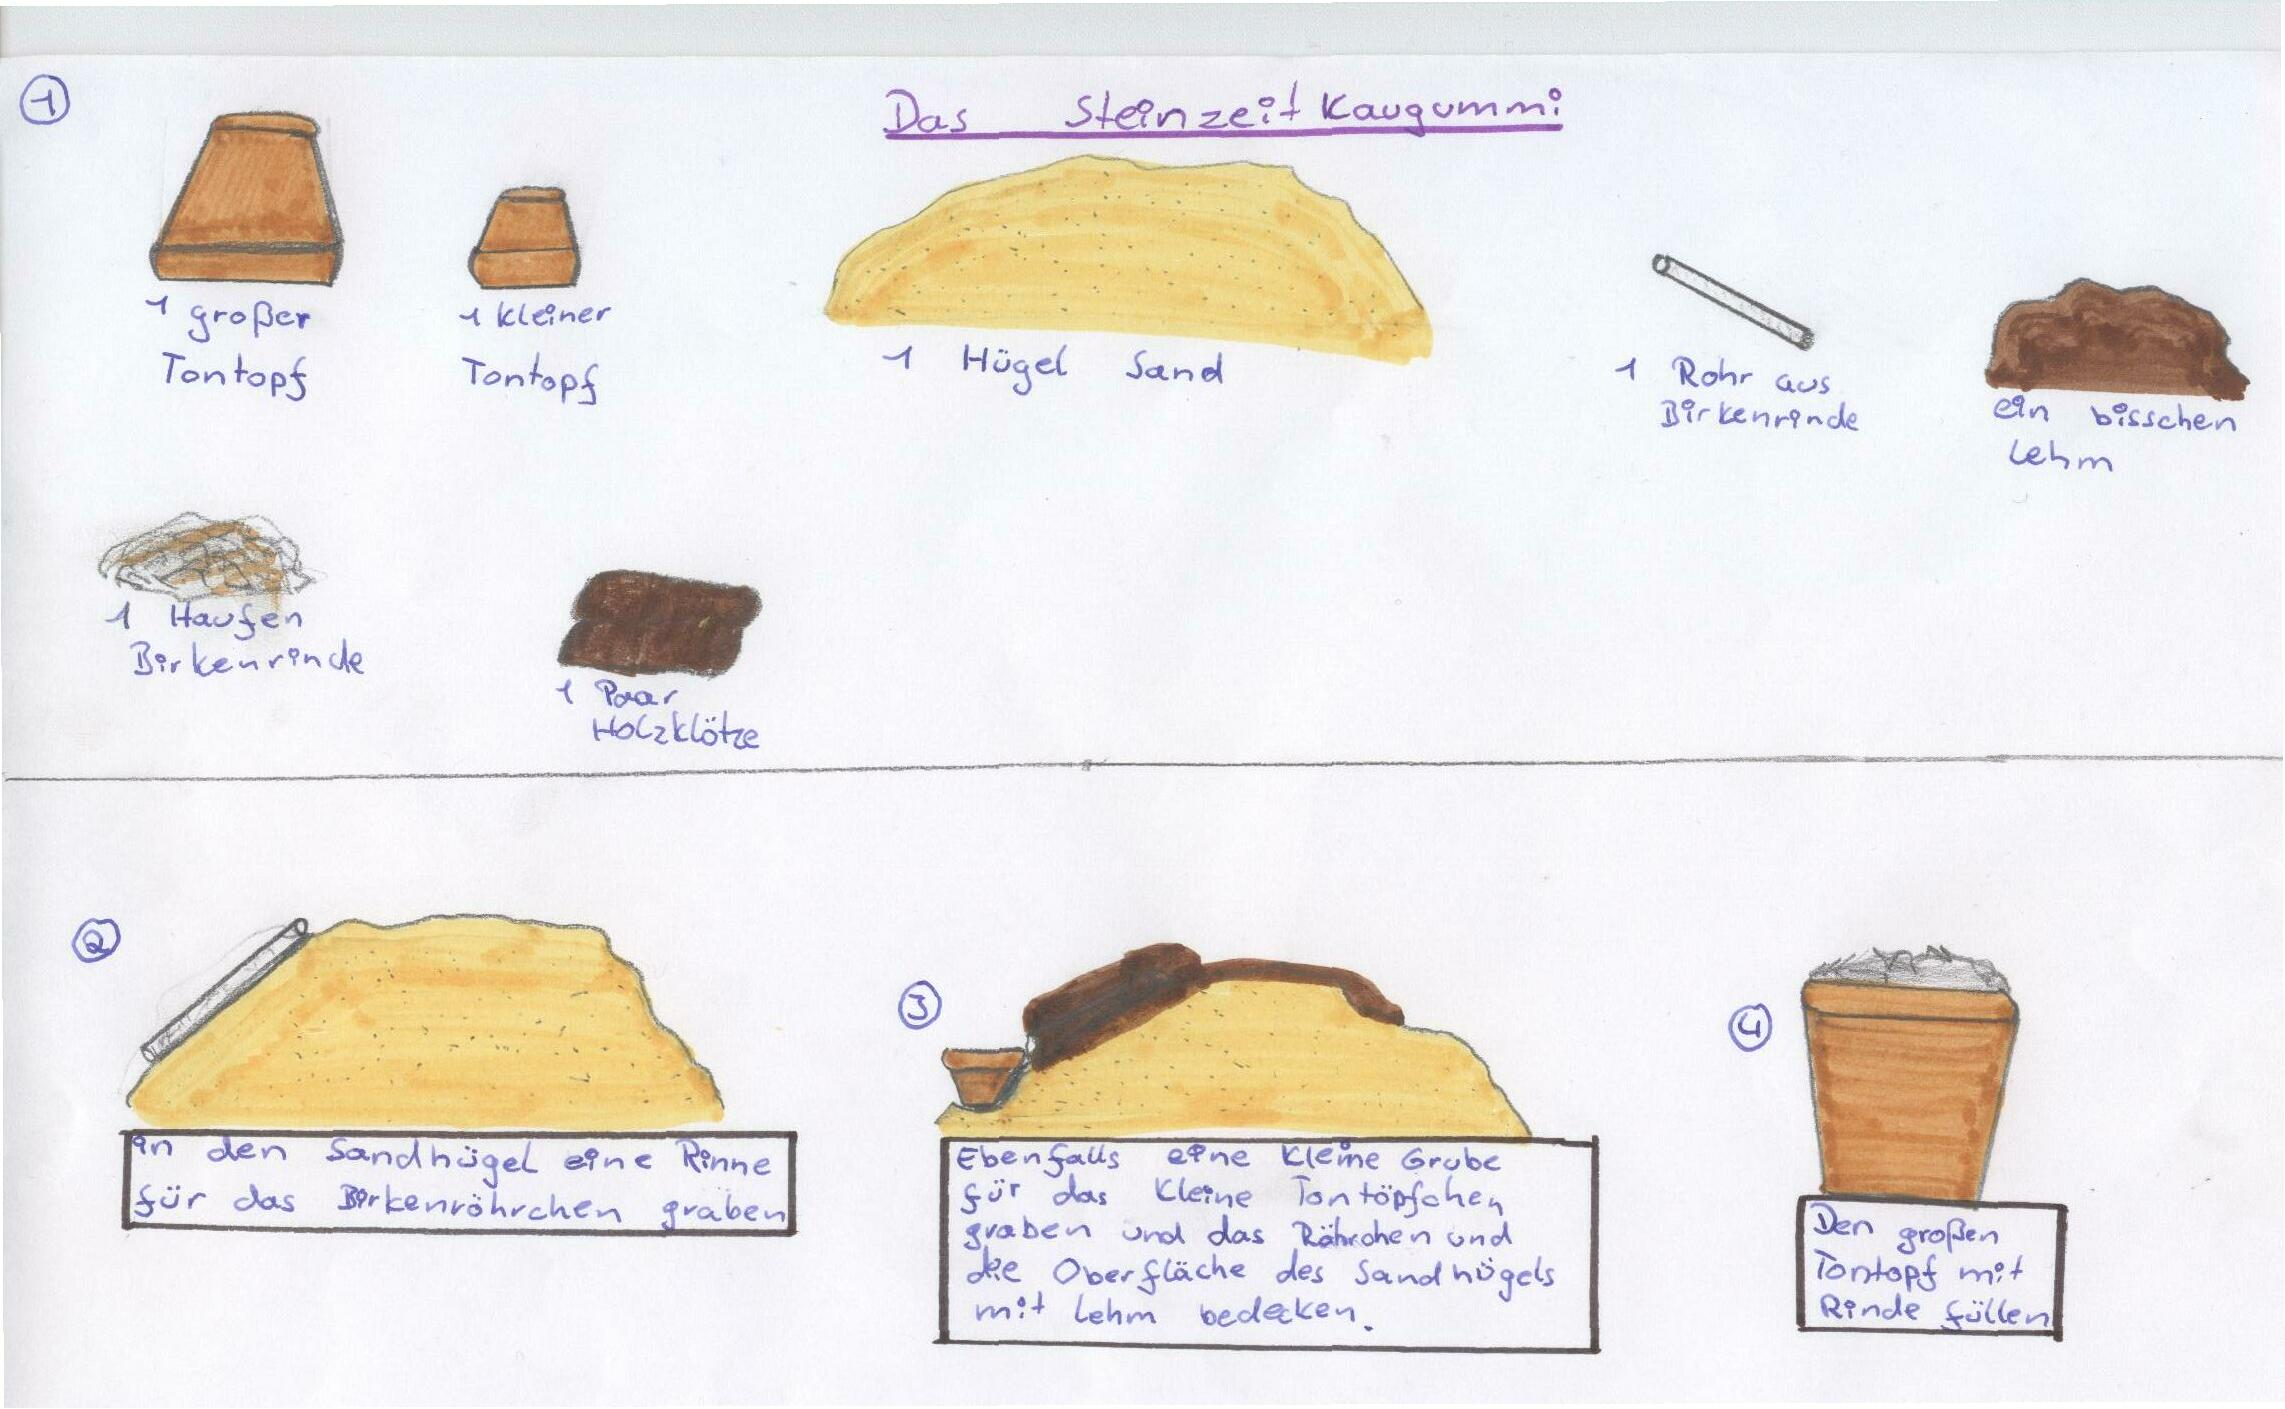 1
Das Steinzeit Kaugummi
1 großer
Tontopf
1 kleiner
Tontopf
1 Hügel Sand
1 Rohr aus
Birkenrinde
ein bisschen
Lehm
1 Haufen
Birkenrinde
1 Paar
Holzklötze
2
in den Sandhügel eine Rinne
für das Birkenröhrchen graben
3
Ebenfalls eine kleine Grube
für das kleine Tontöpfchen
graben und das Röhrchen und
die Oberfläche des Sandhügels
mit Lehm bedecken.
4
Den großen
Tontopf mit
Rinde füllen